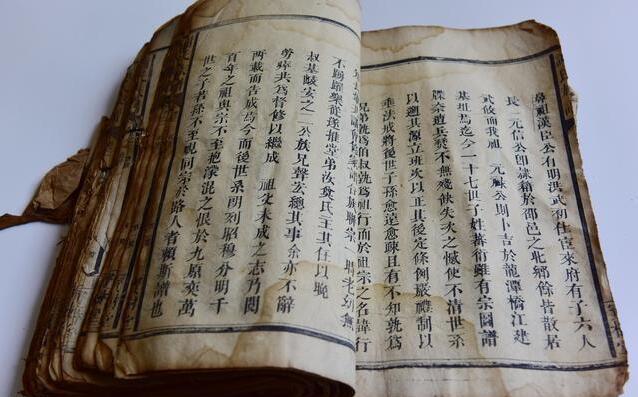 鼻祖漢臣公有明洪武初仕宦來府有子六人
長 元信公卽隸籍於邵邑之北鄉餘皆散居
武攸而我祖 元祿公則卜吉於龍潭橋江建
基址焉迄今一十七世子姓蕃衍雖有宗圖譜
牒奈遭兵燹不無殘缺失次之憾使不清世系
以遡其源立班次以正其後定條例嚴禮制以
垂法戒將後世子孫愈遠愈疎且有不知孰爲
兄弟孰爲伯叔孰爲祖行而於祖宗之名諱行
不踴躍樂從遂推堂弟汝賛氏主其任以晚
叔基峻安之二公族兄聲安總其事余亦不辭
勞瘁共爲督修以繼成 祖父未成之志乃閱
兩載而告成焉今而後世系明列昭穆分明千
百年之祖與宗不至抱濛混之恨於九原奕萬
世之子與孫不至視同宗於路人者賴斯譜也